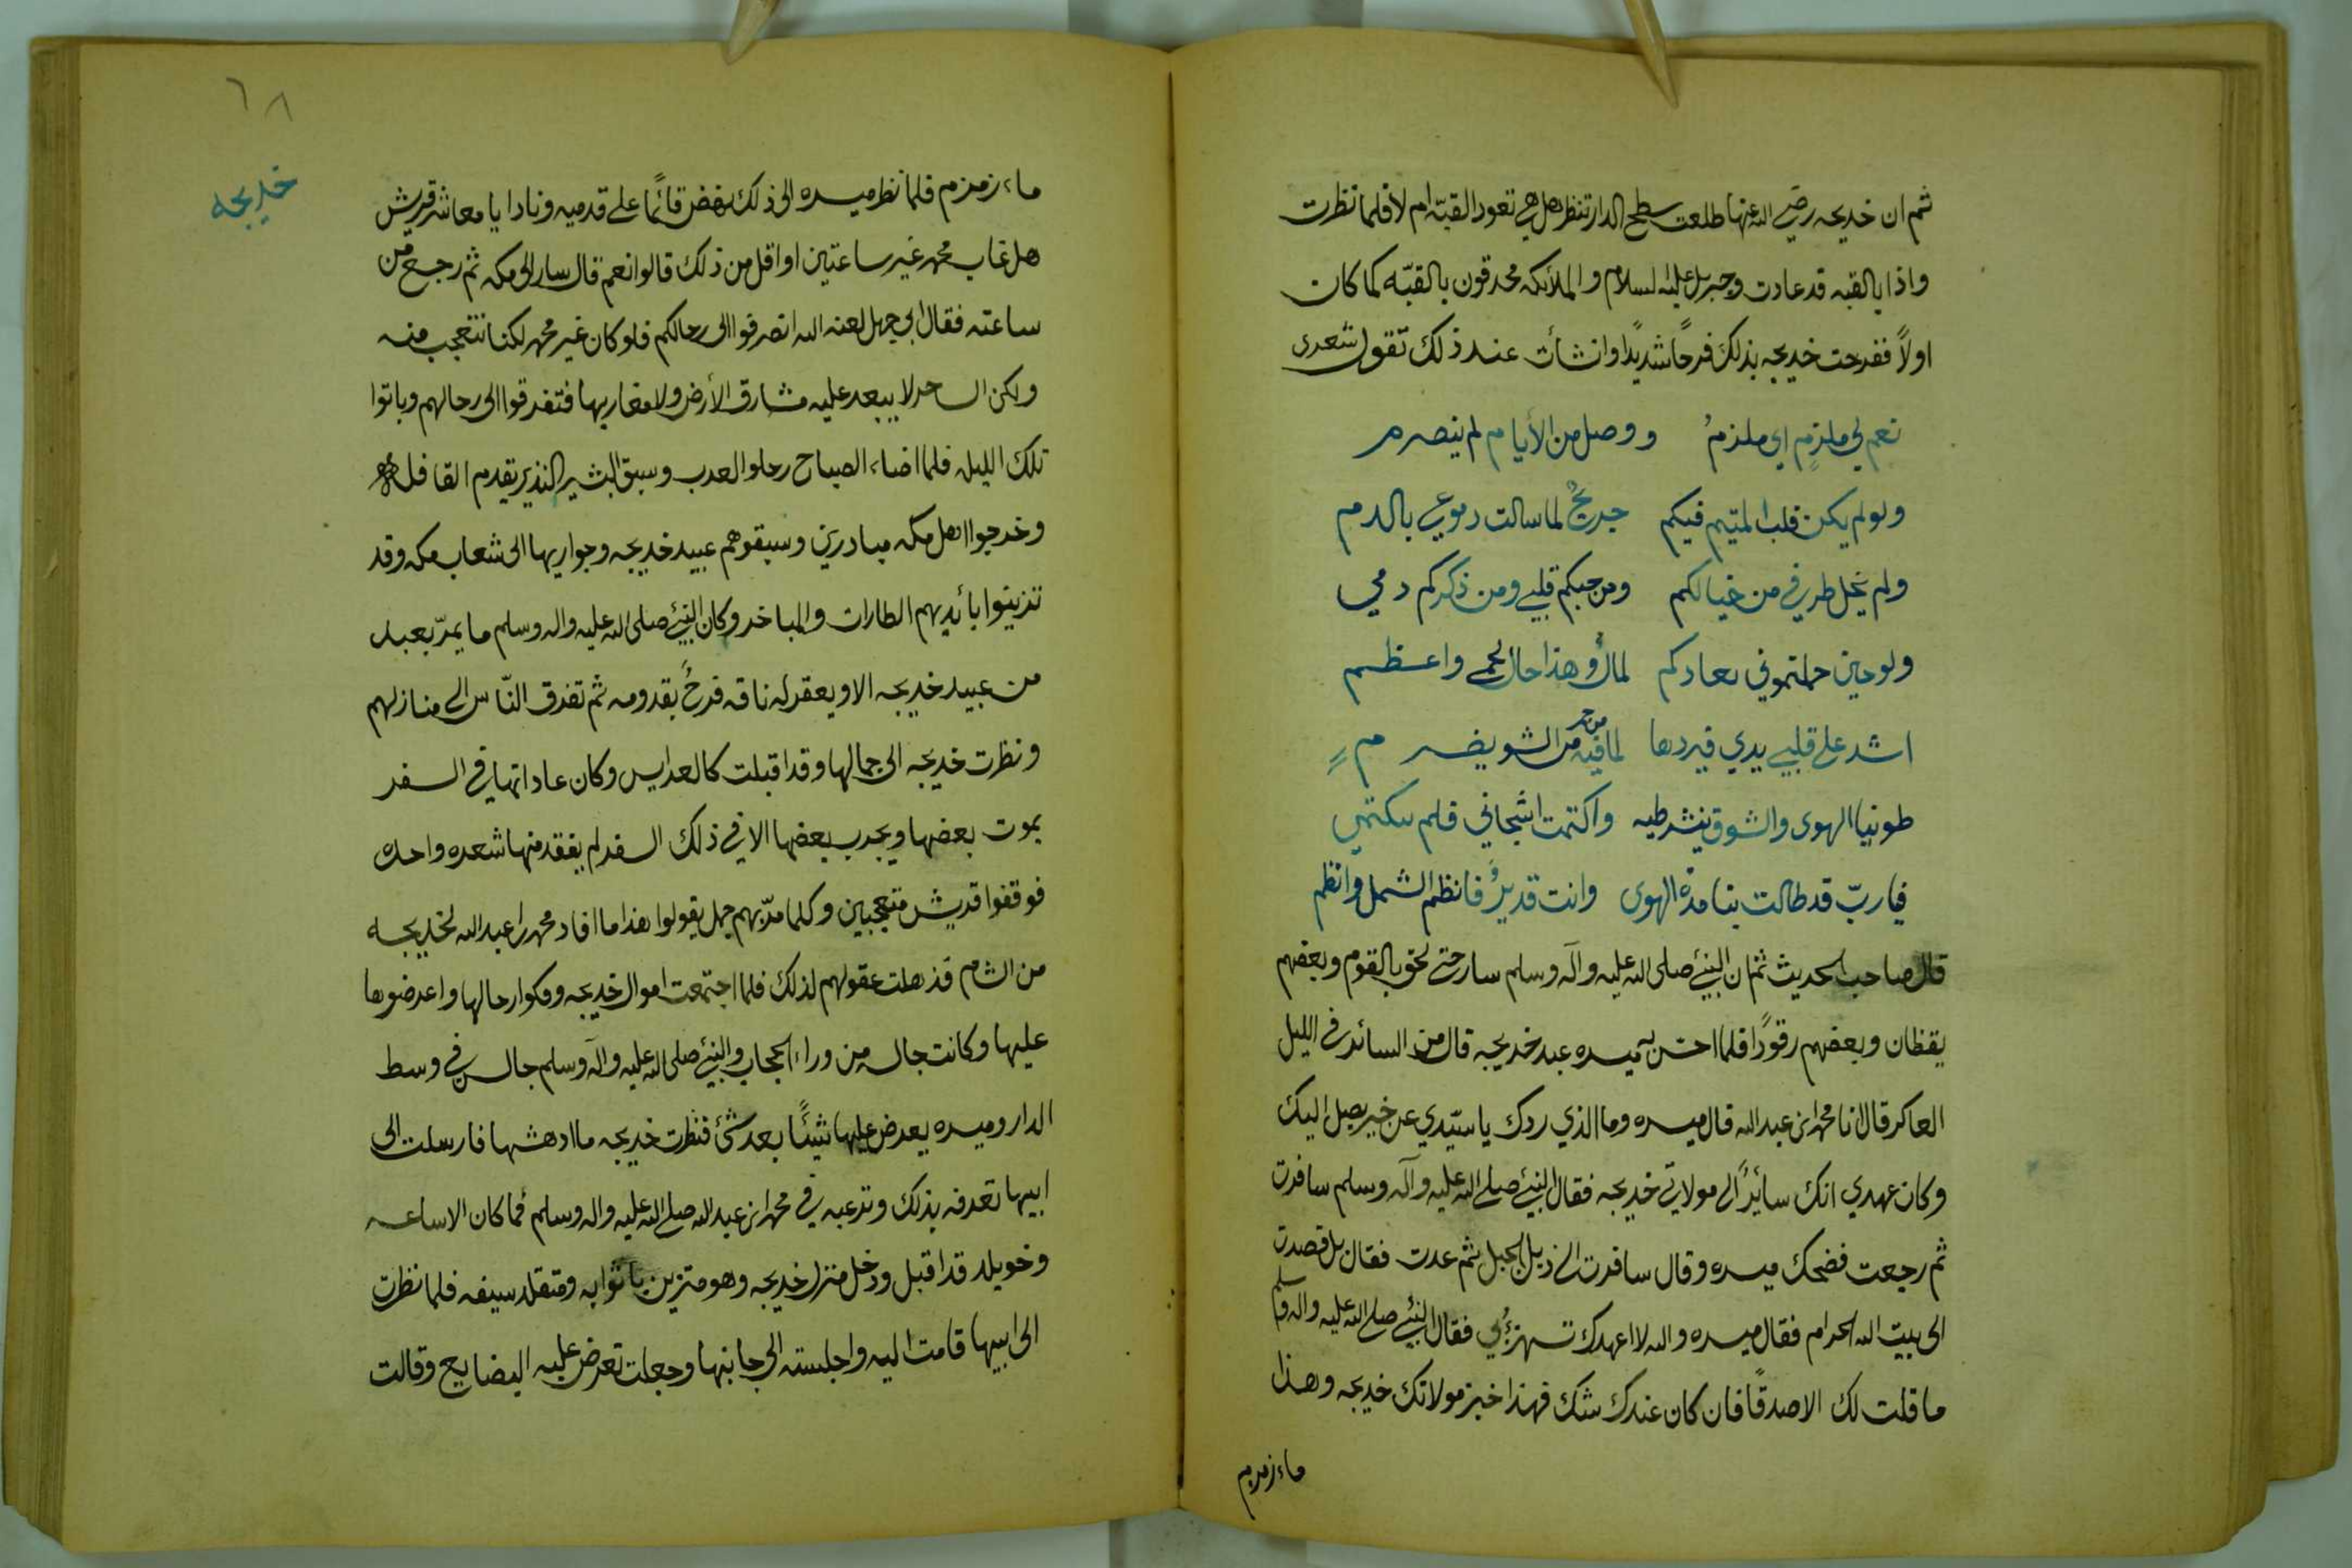 ثم ان خديجه رضي الله عنها طلعت سطح الدار تنظر هل هي تعود القبّه ام لا فلما نظرت
واذا بالقبه قد عادت وجبريل عليه السلام والملائكه محدقون بالقبّه كما كان
اولاً ففرحت خديجه بذلك فرحاً شديداً وانشأت عند ذلك تقول شعرى
نعم لي ملزمٍ اي ملزمُ و ووصل من الأيام لم ينصرم
ولو لم يكن قلب المتيم فيكم جريحٌ لما سالت دموعي بالدم
ولم يخل طرفي من خيالكم ومن حبكم قلبي ومن ذكركم دمي
ولو حين حملتموني بعادكم لمالُ وهذا حال لحمي واعظم
اشد على قلبي يدي فيردها لما فيه من الشو يضر مٍ
من حر
طوينا الهوى والشوق ينشر طيه واكتمت اشجاني فلم تكتمي
فيا ربّ قد طالت بنا مدّة الهوى وانت قديرُ فانظم الشمل وانظم
قال صاحب الحديث ثم ان النبيّ صلى الله عليه وآله وسلم سار حتى لحق بالقوم وبعضهم
يقظان وبعضهم رقوداً فلما احسّ به ميسره عبد خديجه قال من السائر في الليل
العاكر قال انا محمد ابن عبد الله قال ميسره وما الذي ردك يا سيّدي عن خير يصل اليك
وكان عهدي انك سائرٌ الى مولاتي خديجه فقال النبيّ صلى الله عليه وآله وسلم سافرت
ثم رجعت فضحك ميسره وقال سافرت الى ذيل الجبل ثم عدت فقال بل قصدت
الى بيت الله الحرام فقال ميسره والله لا اعهدك تستهزئُ بي فقال النبيّ صلى الله عليه واله وسلم
ما قلت لك الا صدقاً فان كان عندك شك فهذا خبز مولاتك خديجه وهذا
ماء زمزم
٦٨
خديجه
ماء زمزم فلما نظر ميسره الى ذلك نهض قائماً على قدميه ونادا يا معاشر قريش
هل غاب محمد غير ساعتين او اقل من ذلك قالوا نعم قال سار الى مكه ثم رجع من
ساعته فقال ابي جهل لعنه الله انصرفوا الى رحالكم فلو كان غير محمد لكنا نتعجب منه
ولكن الساحر لا يبعد عليه مشارق الأرض ولا مغاربها فتفرقوا الى رحالهم وباتوا
تلك الليله فلما اضاء الصباح رحلو العرب وسبق البشير النذير يقدم القافله
وخرجوا اهل مكه مبادرين وسبقوهم عبيد خديجه وجواريها الى شعاب مكه وقد
تزينوا بأيديهم الطارات والمباخر وكان النبيّ صلى الله عليه واله وسلم ما يمرّ بعبد
من عبيد خديجه الا ويعقر له ناقه فرحٌ بقدومه ثم تفرق النّاس الى منازلهم
ونظرت خديجه الى جمالها وقد اقبلت كالعرايس وكان عاداتها في السفر
يموت بعضها ويجرب بعضها الا في ذلك السفر لم يفقد منها شعره واحده
فوقفوا قريش متعجبين وكلما مرّ بهم جمل يقولوا هذا ما افاد محمد ابن عبد الله لخديجه
من الشام فذهلت عقولهم لذلك فلما اجتمعت اموال خديجه وفكوا رحالها واعرضوها
عليها وكانت جالسه من وراء الحجاب والنبيّ صلى الله عليه وآله وسلم جالس في وسط
الدار وميسره يعرض عليها شيئاً بعد شئ فنظرت خديجه ما ادهشها فارسلت الى
ابيها تعرفه بذلك وترعبه في محمد ابن عبد الله صلى الله عليه واله وسلم فما كان الا ساعه
وخويلد قد اقبل ودخل منزل خديجه وهو متزين باثوابه ومتقلد سيفه فلما نظرت
الى ابيها قامت اليه واجلسته الى جانبها وجعلت تعرض عليه البضايع وقالت